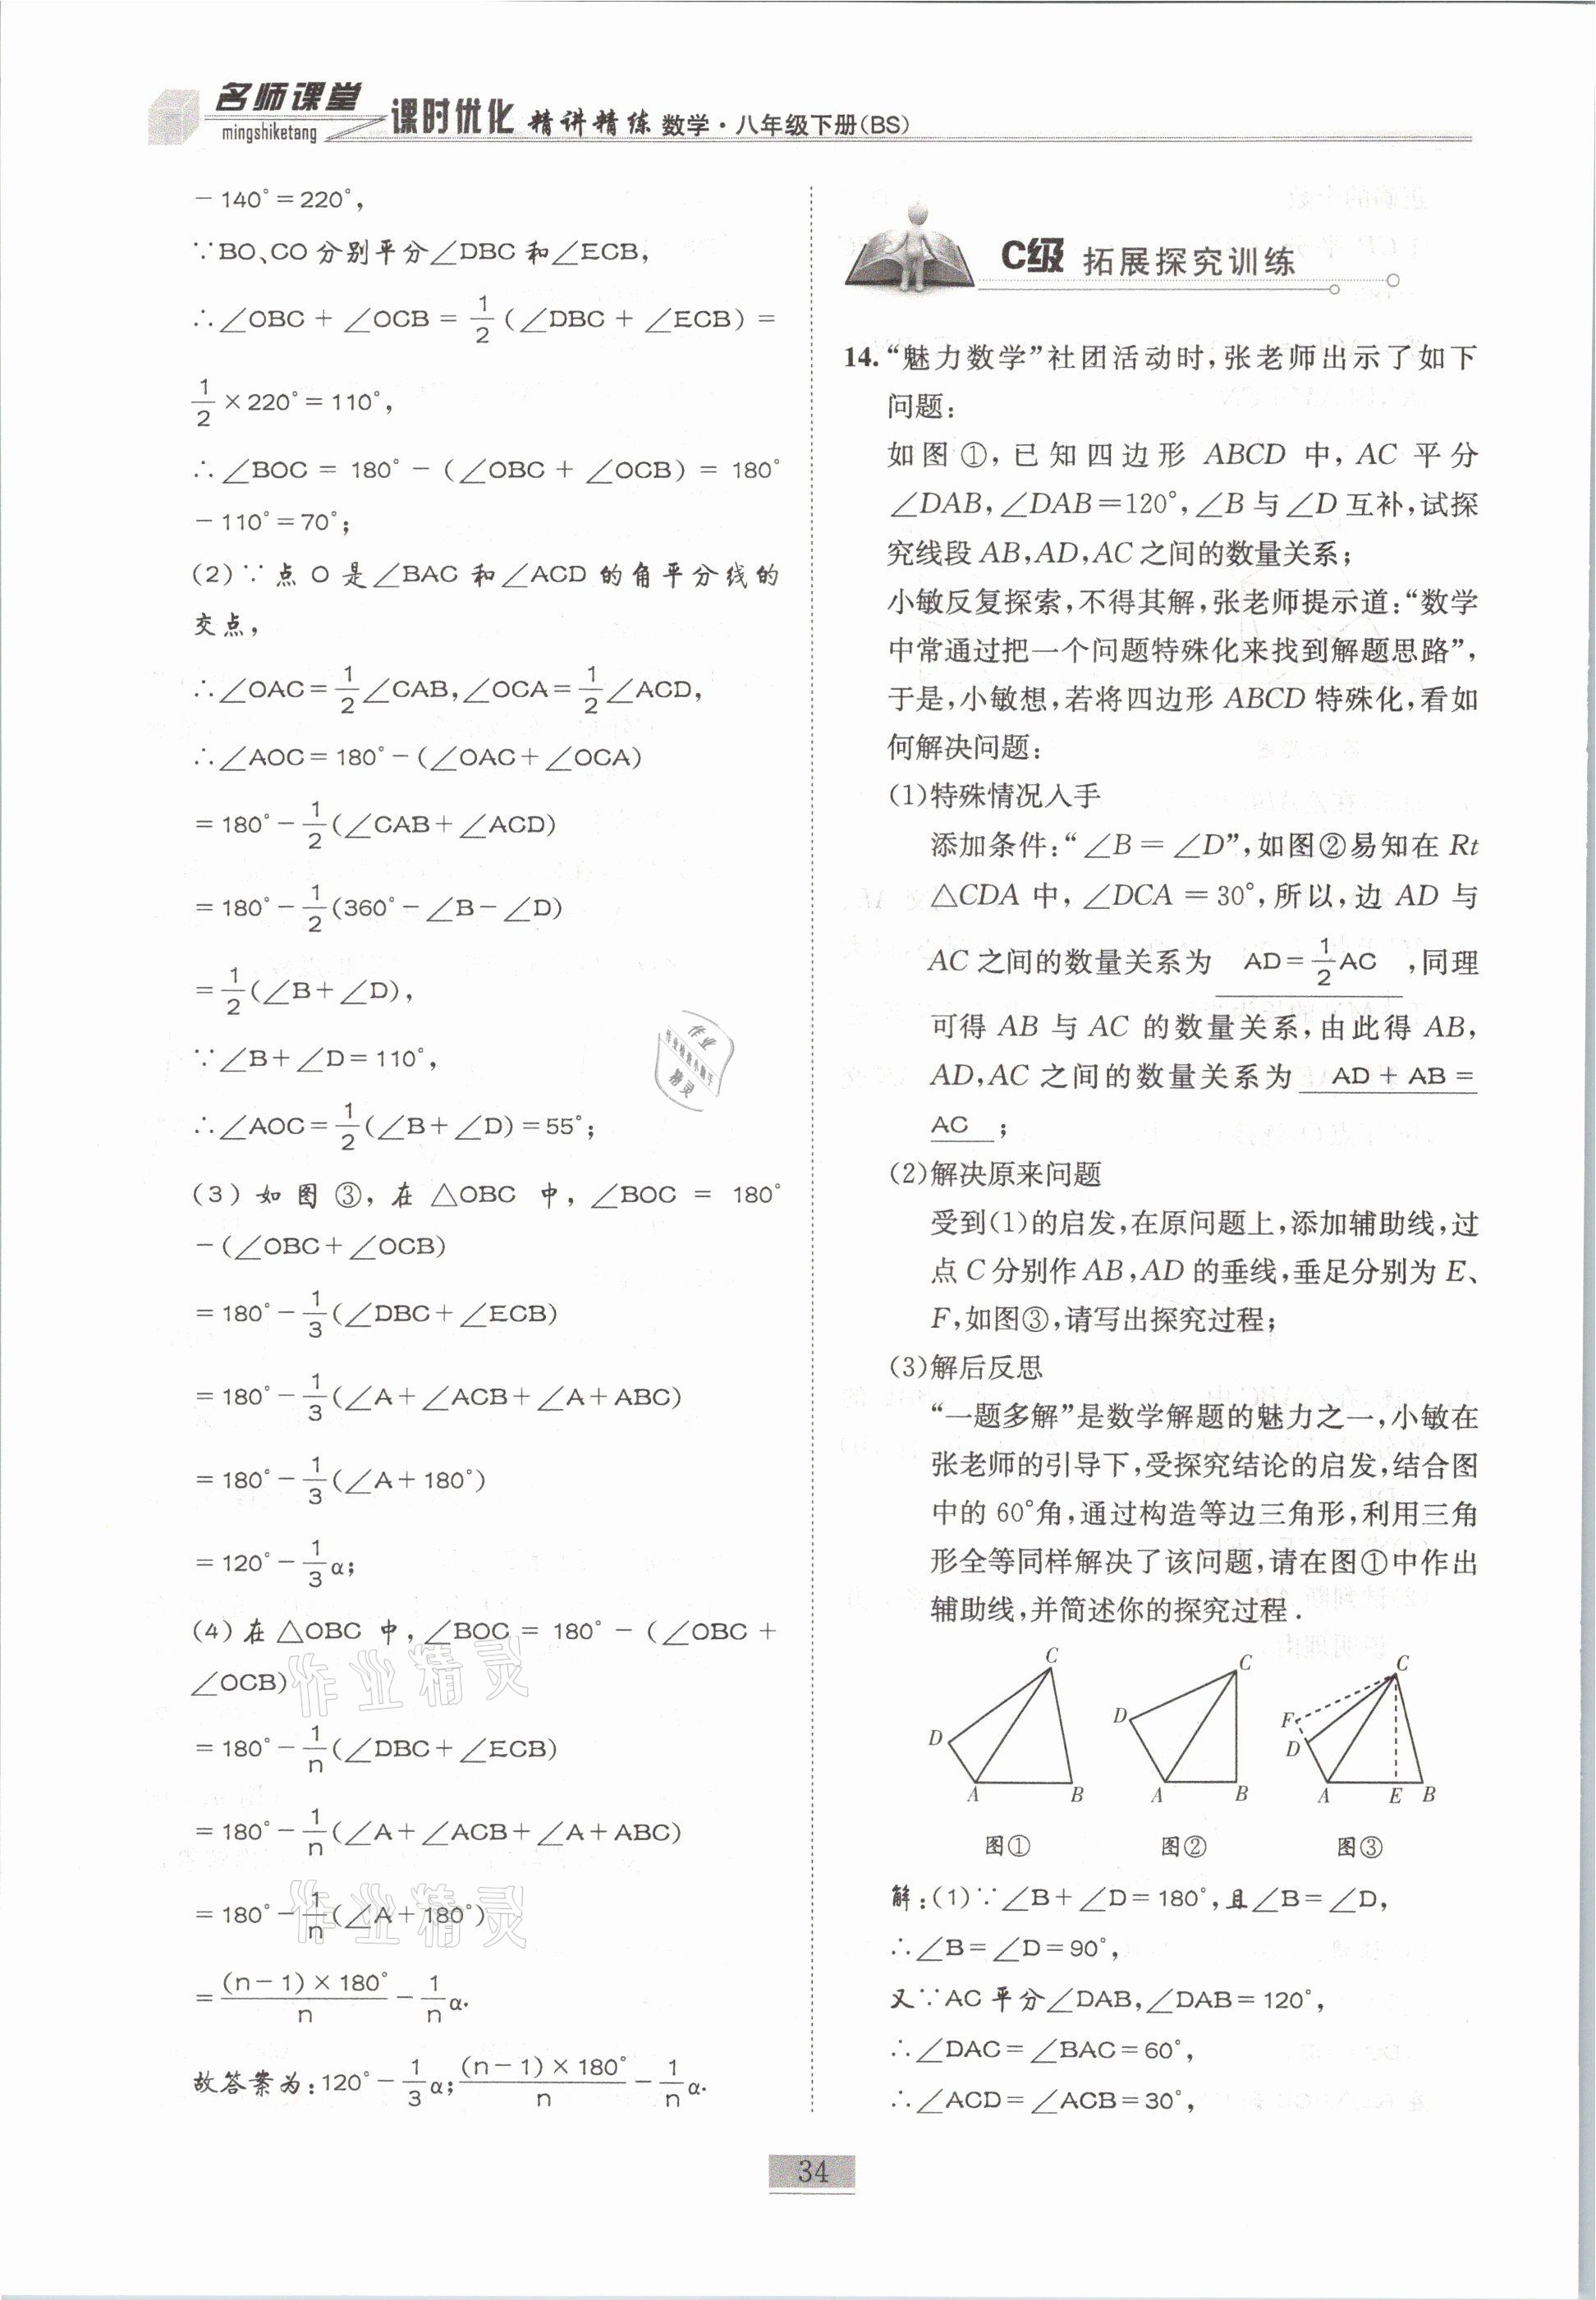 名师课堂
mingshiketang
课时优化 精讲精练 数学·八年级下册(BS)
－140°＝220°，
∵BO、CO分别平分∠DBC和∠ECB，
∴∠OBC＋∠OCB＝1/2（∠DBC＋∠ECB）＝
1/2×220°＝110°，
∴∠BOC＝180°－（∠OBC＋∠OCB）＝180°
－110°＝70°；
（2）∵点O是∠BAC和∠ACD的角平分线的
交点，
∴∠OAC＝1/2∠CAB，∠OCA＝1/2∠ACD，
∴∠AOC＝180°－（∠OAC＋∠OCA）
＝180°－1/2（∠CAB＋∠ACD）
＝180°－1/2（360°－∠B－∠D）
＝1/2（∠B＋∠D），
∵∠B＋∠D＝110°，
∴∠AOC＝1/2（∠B＋∠D）＝55°；
（3）如图③，在△OBC中，∠BOC＝180°
－（∠OBC＋∠OCB）
＝180°－1/3（∠DBC＋∠ECB）
＝180°－1/3（∠A＋∠ACB＋∠A＋ABC）
＝180°－1/3（∠A＋180°）
＝120°－1/3α；
（4）在△OBC中，∠BOC＝180°－（∠OBC＋
∠OCB）
＝180°－1/n（∠DBC＋∠ECB）
＝180°－1/n（∠A＋∠ACB＋∠A＋ABC）
＝180°－1/n（∠A＋180°）
＝(n－1)×180°/n－1/nα.
故答案为：120°－1/3α；(n－1)×180°/n－1/nα.
作业精灵
作业精灵
C级 拓展探究训练
14.“魅力数学”社团活动时，张老师出示了如下
问题：
如图①，已知四边形ABCD中，AC平分
∠DAB，∠DAB＝120°，∠B与∠D互补，试探
究线段AB，AD，AC之间的数量关系；
小敏反复探索，不得其解，张老师提示道：“数学
中常通过把一个问题特殊化来找到解题思路”，
于是，小敏想，若将四边形ABCD特殊化，看如
何解决问题：
(1)特殊情况入手
添加条件：“∠B＝∠D”，如图②易知在Rt
△CDA中，∠DCA＝30°，所以，边AD与
AC之间的数量关系为 AD＝1/2AC ，同理
可得AB与AC的数量关系，由此得AB，
AD，AC之间的数量关系为 AD＋AB＝
AC ；
(2)解决原来问题
受到(1)的启发，在原问题上，添加辅助线，过
点C分别作AB，AD的垂线，垂足分别为E、
F，如图③，请写出探究过程；
(3)解后反思
“一题多解”是数学解题的魅力之一，小敏在
张老师的引导下，受探究结论的启发，结合图
中的60°角，通过构造等边三角形，利用三角
形全等同样解决了该问题，请在图①中作出
辅助线，并简述你的探究过程．
C
D
A
B
图①
C
D
A
B
图②
C
F
D
A
E
B
图③
解：（1）∵∠B＋∠D＝180°，且∠B＝∠D，
∴∠B＝∠D＝90°，
又∵AC平分∠DAB，∠DAB＝120°，
∴∠DAC＝∠BAC＝60°，
∴∠ACD＝∠ACB＝30°，
34